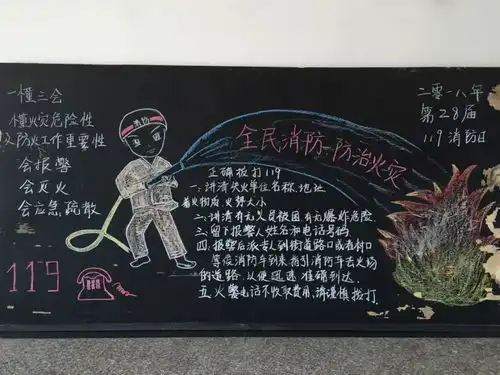 一懂三会
懂火灾危险性
防火工作重要性
会报警
会灭火
会应急疏散
119
消防
全民消防·防治火灾
二零一八年
第28届
119消防日
正确拨打119
一、讲清失火单位名称、地址
着火物质、火势大小
二、讲清有无人员被困、有无爆炸危险
三、留下报警人姓名和电话号码
四、报警后派专人到街道路口或者村口
等候消防车到来,指引消防车去火场
的道路,以便迅速、准确到达.
五、火警电话不收取费用,请谨慎拨打.